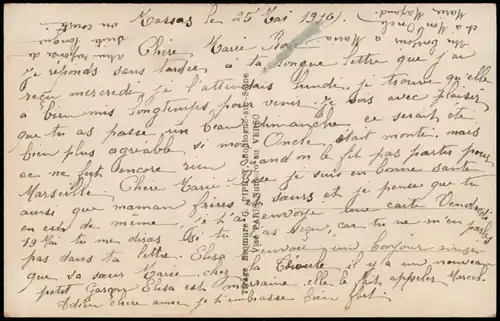 Massas le 25 Mai 1916.
Chère Marie Rose
je réponds sans tarder a ta longue lettre que j'ai
reçu mercredi je l'attendais lundi, je trouve qu'elle
a bien mis longtemps pour venir. je vois avec plaisir
que tu as passé un beau dimanche, ce serait été
bien plus agréable si mon Oncle était monté, mais
ce ne fut encore rien quand on le fit pas partir pour
Marseille. Chère Marie je suis en bonne santé
ainsi que maman frères et sœurs et je pense que tu
en est de même, je t'ai envoyé une carte Vendredi
19 Mai tu me diras si tu l'as reçu, car tu ne m'en parles
pas dans ta lettre. Elisa t'envoie un bonjour ainsi
que sa sœur Marie, chez la il y a un nouveau
petit Garçon Elisa est marraine, elle le fait appeler Marcel
Adieu chère amie je t'embrasse bien fort
Un bonjour a Maria
et a Mon Oncle
Marie
Tirage Bromure G. PIPROT, Boulogne-sur-Seine
Visé PARIS, Numéro au VERSO